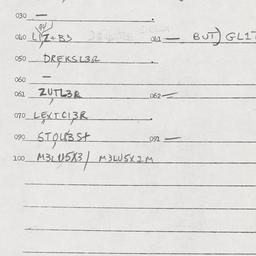 030 —
040 LIZ+B3 061 — BUT) GLIT
050 DREKSL3R
060 —
061 ZUTL3R 062 —
070 LEXTCI3R
090 STOLB3S+ 091 —
100 M3LU5X3/ M3LU5XIM